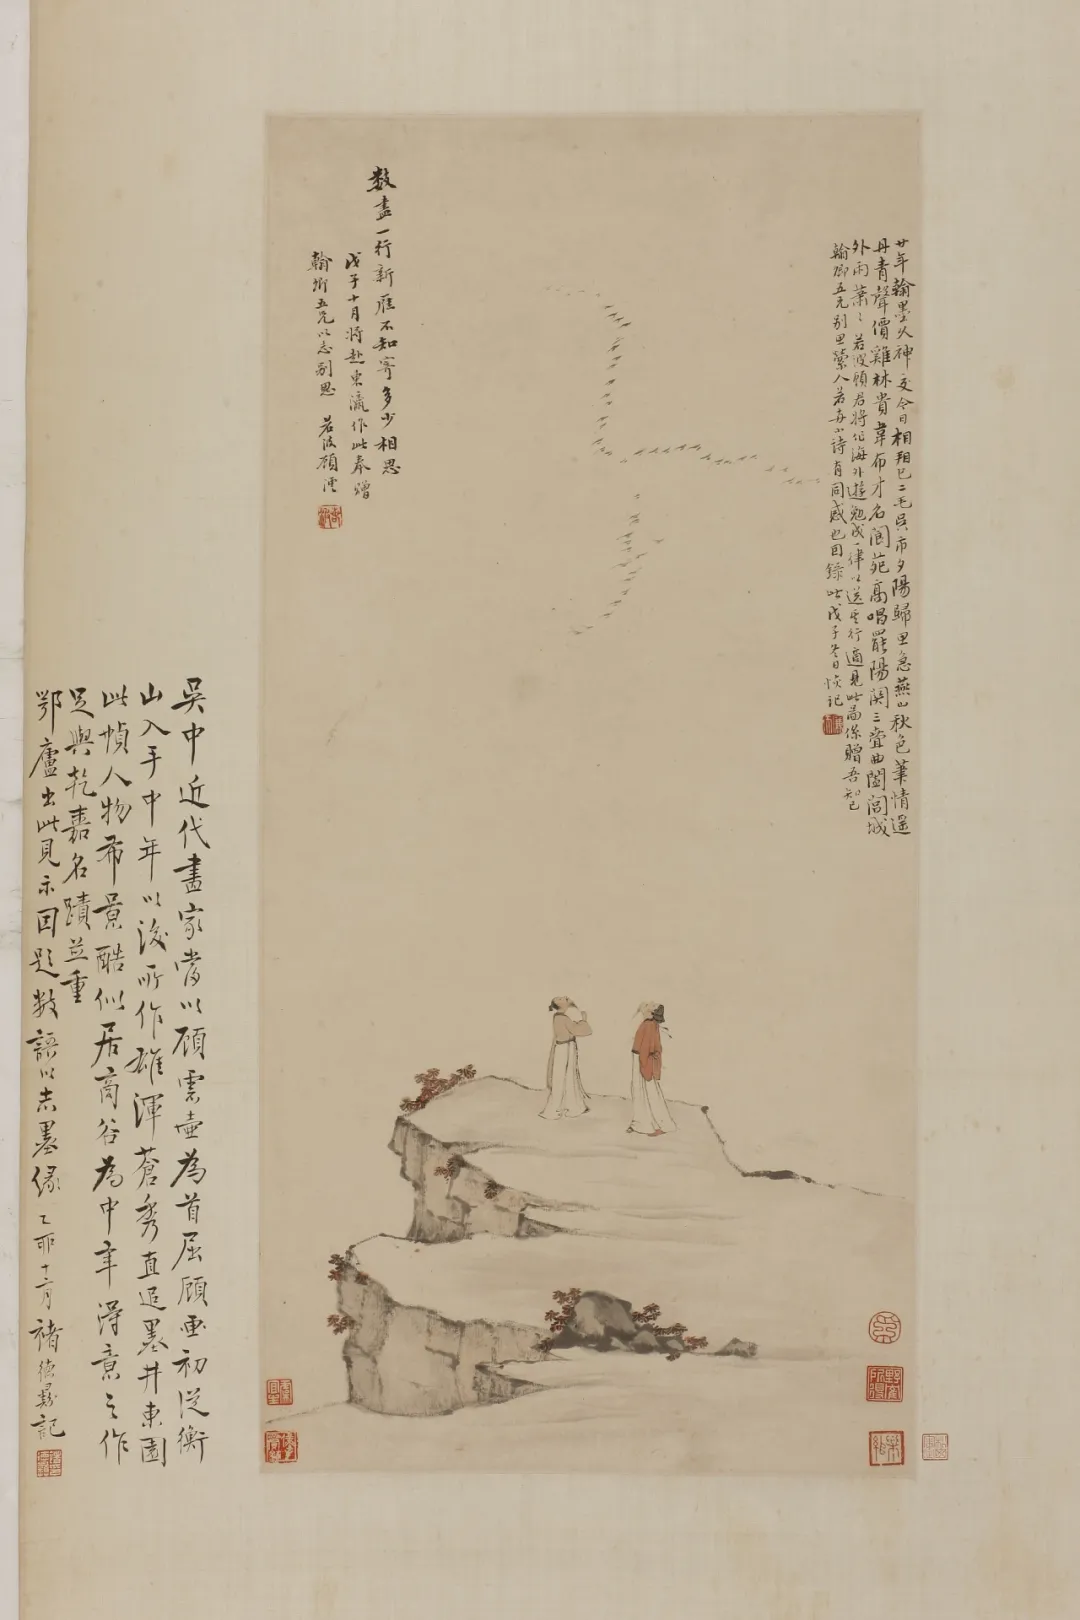 數盡一行新雁不知寄多少相思
戊子十月將赴東瀛作此奉贈
翰卿五兄以志別思 若波顧澐
廿年翰墨久神交今日相邀已二毛吳市夕陽歸思急燕山秋色筆情遙
丹青聲價雞林貴韋布才名閬苑高唱罷陽關三疊曲闔閭城
外雨蕭蕭 若波顧君將作海外遊勉成一律以送其行適見此圖係贈吾知己
翰卿五兄別思縈人若與小詩有同感也因錄此戊子冬日 記
吳中近代畫家當以顧雲壺為首屈顧畫初從衡
山入手中年以後所作雄渾蒼秀直追墨井東園
此幀人物布景酷似居商谷為中年得意之作
足與乾嘉名蹟並重
鄂廬出此見示因題數語以志墨緣 乙酉十一月 褚德彝記